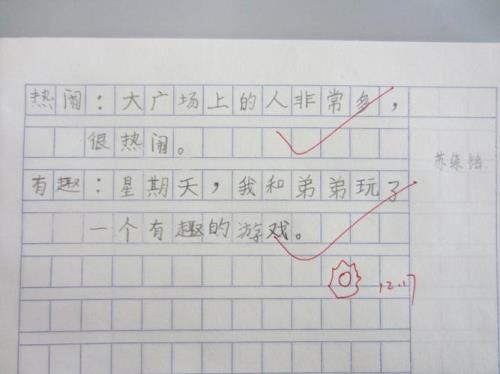 热闹：大广场上的人非常多，
很热闹。
有趣：星期天，我和弟弟玩了
一个有趣的游戏。
12.17